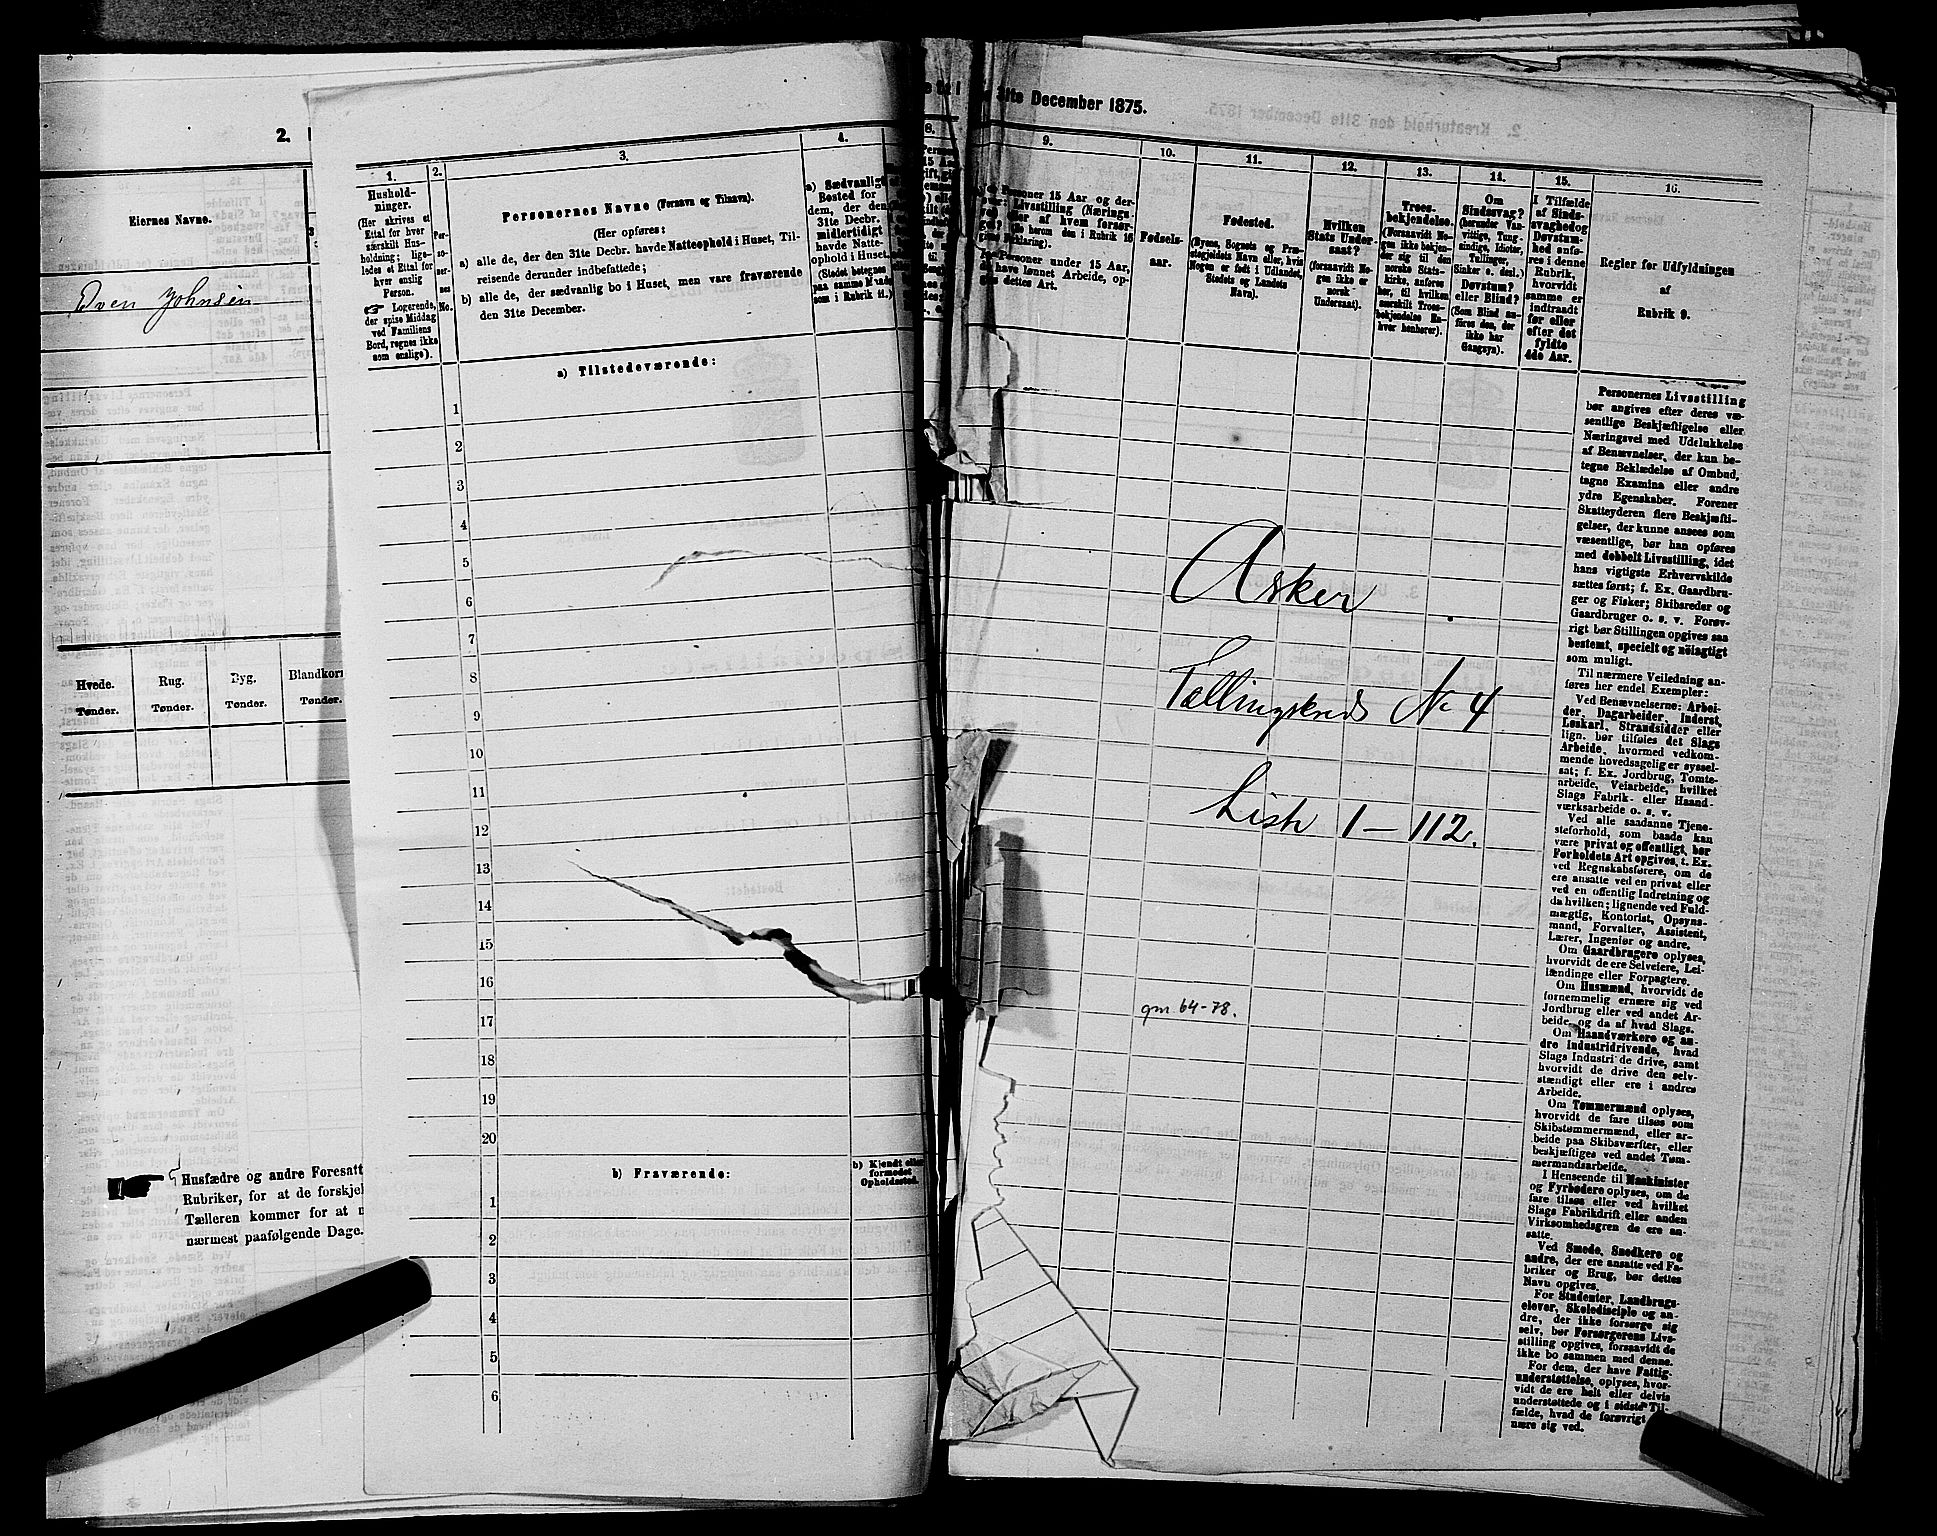 2.
Eiernes Navne.
Oven Johnsen
Hvede.
Rug.
Byg.
Blandkorn
Tønder.
Tønder.
Tønder.
Tønder.
Husfædre og andre Foresatt
Rubriker, for at de forskjel
Tælleren kommer for at
nærmest paafølgende Dage.
1.
Hushold-
ninger.
(Her skrives et
Ettal for hver
særskilt Hus-
holdning; lige-
ledes et Ettal for
hver enslig
Person.
Logerende,
der spise Middag
ved Familiens
Bord, regnes ikke
som enslige).
2.
Per-
so-
ner-
nes
No.
3.
Personernes Navne (Fornavn og Tilnavn).
(Her opføres:
a) alle de, der den 31te Decbr. havde Natteophold i Huset, Til-
reisende derunder indbefattede;
b) alle de, der sædvanlig bo i Huset, men vare fraværende
den 31te December.
4.
a) Sædvanligt
Bosted for
dem, der den
31te Decbr.
midlertidigt
havde Natte-
ophold i Huset.
(Stedet betegnes
paa samme Maade
som i Rubrik 11.)
a) Tilstedeværende:
1
2
3
4
5
6
7
8
9
10
11
12
13
14
15
16
17
18
19
20
b) Fraværende:
b) Kjendt eller
formodet
Opholdssted.
1
2
3
4
5
6
8.
31te December 1875.
9.
Personer 15 Aar og der-
over: Livsstilling (Nærings-
vei) eller af hvem forsør-
get? (Se herom den i Rubrik 16
givne Forklaring).
Personer under 15 Aar,
have lønnet Arbeide, op-
gives dettes Art.
10.
Fødsels-
aar.
11.
Fødested.
(Byens, Sognets og Præ-
stegjeldets Navn eller, hvis
Nogen er født i Udlandet,
Stedets og Landets
Navn).
12.
Hvilken
Stats Under-
saat?
(forsaavidt No-
gen ikke er
norsk
Undersaat).
13.
Troes-
bekjendelse.
(Forsaavidt No-
gen ikke bekjen-
der sig til den
norske Stats-
kirke, anføres
her, til hvilken
særskilt Troes-
bekjendelse En-
hver henhører).
14.
Om
Sindssvag?
(herunder Van-
vittige, Tung-
sindige, Idioter,
Tullinger,
Sinker o. desl.)
Døvstum?
eller Blind?
(Som Blind an-
føres den, der
ikke har
Gangsyn).
15.
I Tilfælde
af Sinds-
svaghed og
Døvstum-
hed anfø-
res i denne
Rubrik,
hvorvidt
samme er
indtraadt
før eller
efter det
fyldte
4de Aar.
16.
Regler for Udfyldningen
af
Rubrik 9.
Personernes Livsstilling
bør angives efter deres væ-
sentlige Beskjæftigelse eller
Næringsvei med Udelukkelse
af Benævnelser, der kun be-
tegne Beklædelse af Ombud,
tagne Examina eller andre
ydre Egenskaber. Forener
Skatteyderen flere Beskjæfti-
gelser, der kunne ansees som
væsentlige, bør han opføres
med dobbelt Livsstilling, idet
hans vigtigste Erhvervskilde
sættes først; f. Ex. Gaardbru-
ger og Fisker; Skibsreder og
Gaardbruger o. s. v. Forøv-
rigt bør Stillingen opgives saa
bestemt, specielt og nöiagtigt
som muligt.
Til nærmere Veiledning an-
føres her endel Exempler:
Ved Benævnelserne: Arbei-
der, Dagarbeider, Inderst,
Løskarl, Strandsidder eller
lign. bør tilføies det Slags
Arbeide, hvormed vedkom-
mende hovedsagelig er syssel-
sat; f. Ex. Jordbrug, Tomte-
arbeide, Veiarbeide, hvilket
Slags Fabrik- eller Haand-
værksarbeide o. s. v.
Ved alle saadanne Tjene-
steforhold, som baade kan
være privat og offentligt, bør
Forholdets Art opgives, t. Ex.
ved Regnskabsførere, om de
ere ansatte ved en privat eller
ved en offentlig Indretning og
da hvilken; lignende ved Fuld-
mægtig, Kontorist, Opsyns-
mand, Forvalter, Assistent,
Lærer, Ingeniør og andre.
Om Gaardbrugere oplyses,
hvorvidt de ere Selveiere, Lei-
lændinge eller Forpagtere.
Om Husmænd, hvorvidt de
fornemmelig ernære sig ved
Jordbrug eller ved andet Ar-
beide, og da af hvad Slags.
Om Haandværkere og an-
dre Industridrivende, hvad
Slags Industri de drive, samt
hvorvidt de drive den selv-
stændigt eller ere i andres
Arbeide.
Om Tømmermænd oplyses,
hvorvidt de fare tilsøs som
Skibstømmermænd, eller ar-
beide paa Skibsværfter, eller
beskjæftiges ved andet Tøm-
mermandsarbeide.
I Henseende til Maskinister
og Fyrbødere oplyses, om de
fare tilsøs eller ved hvilket
Slags Fabrikdrift eller anden
Virksomhedsgren de ere an-
satte.
Ved Smede, Snedkere og
andre, der ere ansatte ved Fa-
briker og Brug, bør dettes
Navn opgives.
For Studenter, Landbrugs-
elever, Skoledisciple og an-
dre, der ikke forsørge sig
selv, bør Forsørgerens Livs-
stilling opgives, forsaavidt de
ikke bo sammen med denne.
For dem, der have Fattig-
understøttelse, oplyses, hvor-
vidt de ere helt eller delvis
understøttede og i sidste Til-
fælde, hvad de forøvrigt
nære sig ved.
Asker
Tællingskreds No 4
Liste 1-112.
gm 64-78.